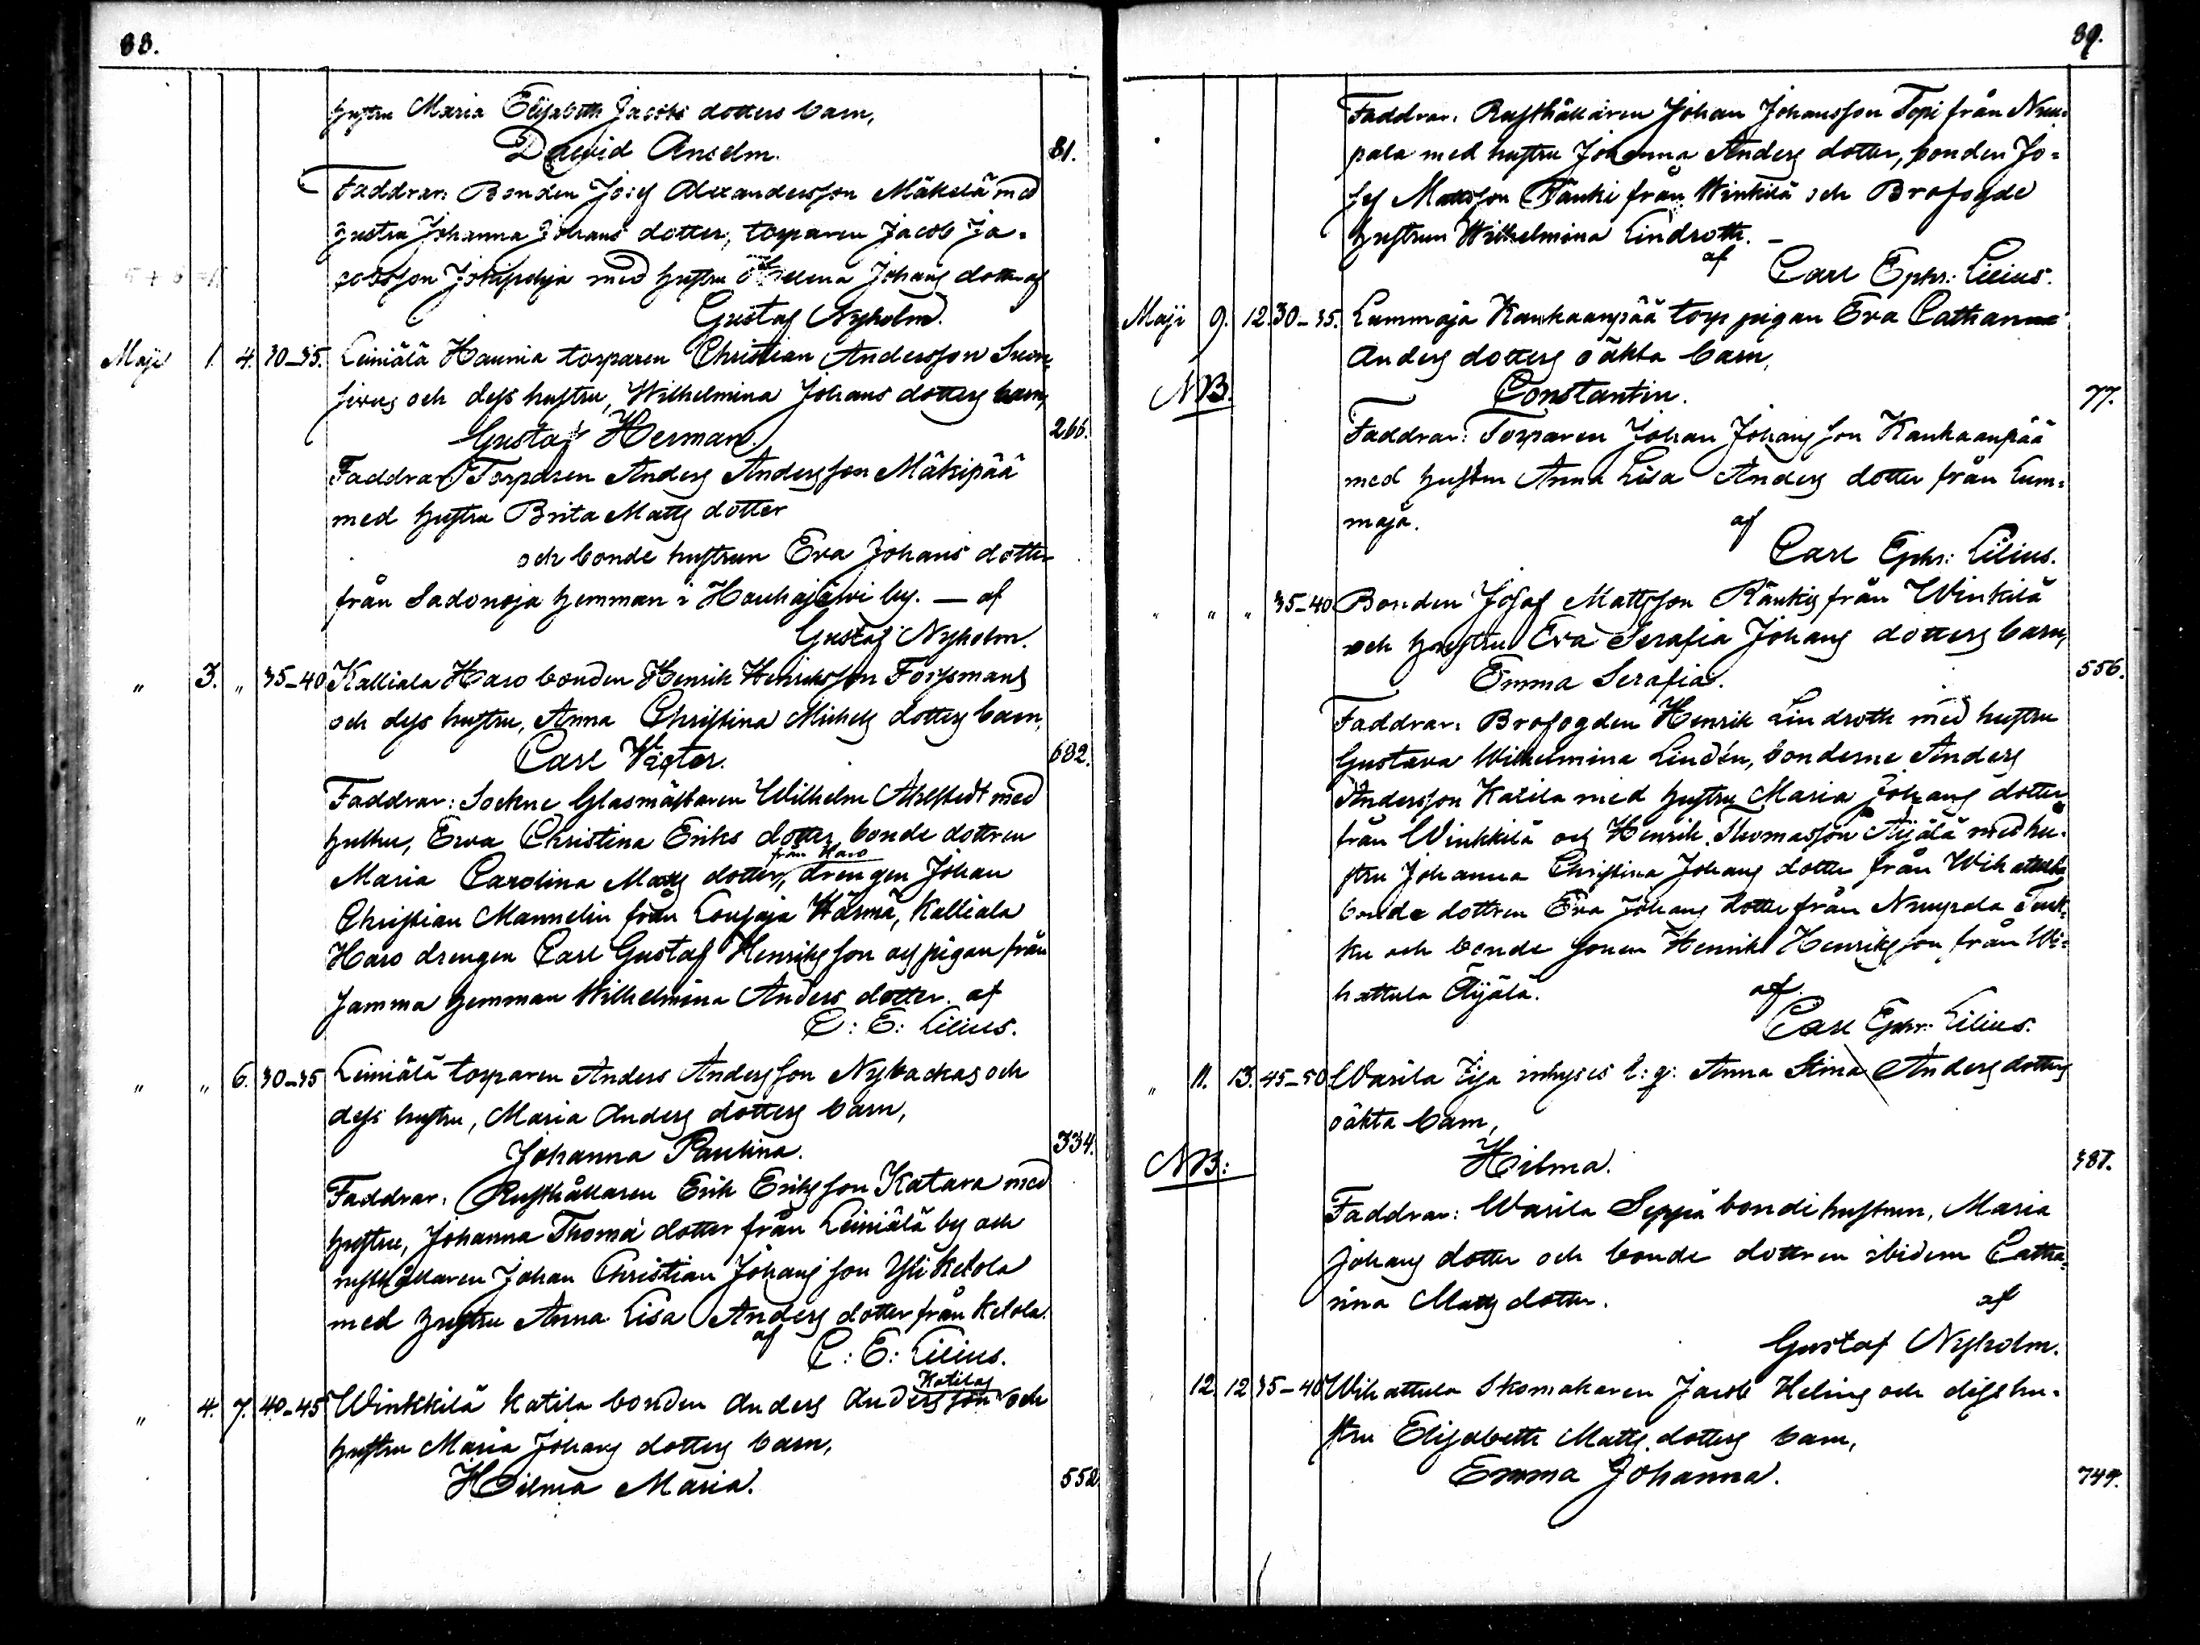 88.
hustru Maria Elisabeth Jacobs dotters barn,
David Anselm. 81.
Faddrar: Bonden Josef Alexandersson Mäkelä med
hustru Johanna Johans dotter, torparen Jacob Ja-
cobsson Jokipohja med hustru Helena Johans dotter af
Gustaf Nyholm.
Maji 1. 4. 30–35. Leiniälä Haunia torparen Christian Andersson
och dess hustru, Wilhelmina Johans dotters barn,
Gustaf Herman. 266.
Faddrar: Torparen Anders Andersson Mäkipää
med hustru Brita Matts dotter
och bonde hustrun Eva Johans dotter
från Sadonoja hemman i Haukajärwi by. — af
Gustaf Nyholm.
" 3. " 35–40 Kalliala Haro bonden Henrik Henriksson Forssmans
och dess hustru, Anna Christina Michels dotters barn,
Carl Victor. 682.
Faddrar: Sockne Glasmästaren Wilhelm Ahlstedt med
hustru, Ewa Christina Eriks dotter, bonde dottren
Maria Carolina Matts dotter från Haro, drengen Johan
Christian Mannelin från Lousaja Härmä, Kalliala
Haro drengen Carl Gustaf Henriksson och pigan från
Jamma hemman Wilhelmina Anders dotter. af
C: E: Lilius.
" " 6. 30–35 Leiniälä torparen Anders Andersson Nybackas och
dess hustru, Maria Anders dotters barn,
Johanna Paulina. 334.
Faddrar: Rusthållaren Erik Eriksson Katara med
hustru, Johanna Thoma dotter från Leiniälä by och
rusthållaren Johan Christian Johansson Yli Ketola
med hustru Anna Lisa Anders dotter från Ketola.
af C: E: Lilius.
" 4. 7. 40–45 Winkkilä Katila bonden Anders Andersson Katilas och
hustru Maria Johans dotters barn,
Hilma Maria. 552
89.
Faddrar: Rusthållaren Johan Johansson Topi från Nuu-
pala med hustru Johanna Anders dotter, bonden Jo-
sef Mattsson Ränki från Winkilä och Brofogde
hustrun Wilhelmina Lindroth. —
af Carl Ephr: Lilius.
Maji 9. 12. 30–35. Lammaja Kankaanpää torp pigan Eva Catharina
Anders dotters oäkta barn,
NB. Constantin. 77.
Faddrar: Torparen Johan Johansson Kankaanpää
med hustru Anna Lisa Anders dotter från Lam-
maja. af
Carl Ephr: Lilius.
" " " 35–40 Bonden Josef Mattsson Ränkis från Winkilä
och hustru Eva Serafia Johans dotters barn,
Emma Serafia. 556.
Faddrar: Brofogden Henrik Lindroth med hustru
Gustava Wilhelmina Lindén, bönderne Anders
Andersson Katila med hustru Maria Johans dotter
från Winkkilä och Henrik Thomasson Äijälä med hu-
stru Johanna Christina Johans dotter från Wihattula
bonde dottren Eva Johans dotter från Nuupala
ku och bonde sonen Henrik Henriksson från Wi-
hattula Äijälä. af
Carl Ephr: Lilius.
" 11. 13. 45–50 Warila Eija inhyses l: q: Anna Stina Anders dotters
oäkta barn,
NB: Hilma. 387.
Faddrar: Warila Seppä bonde hustrun, Maria
Johans dotter och bonde dottren ibidem Catha-
rina Matts dotter. af
Gustaf Nyholm.
12. 12 35–40 Wihattula Skomakaren Jacob Helins och dess hu-
stru Elisabeth Matts dotters barn,
Emma Johanna. 749.